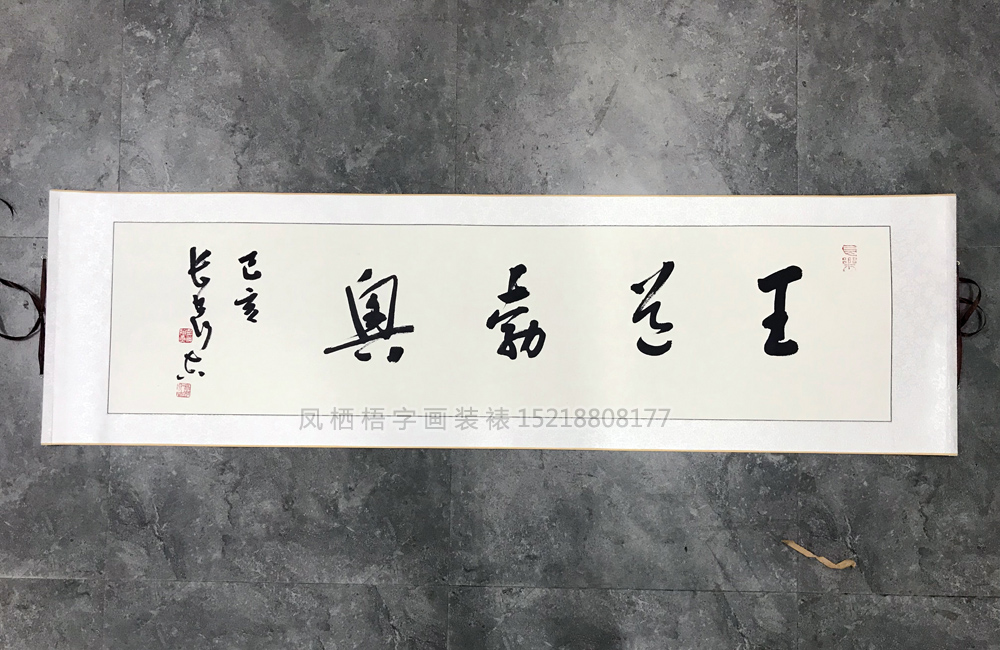 王道勃興
己亥
凤栖梧字画装裱15218808177